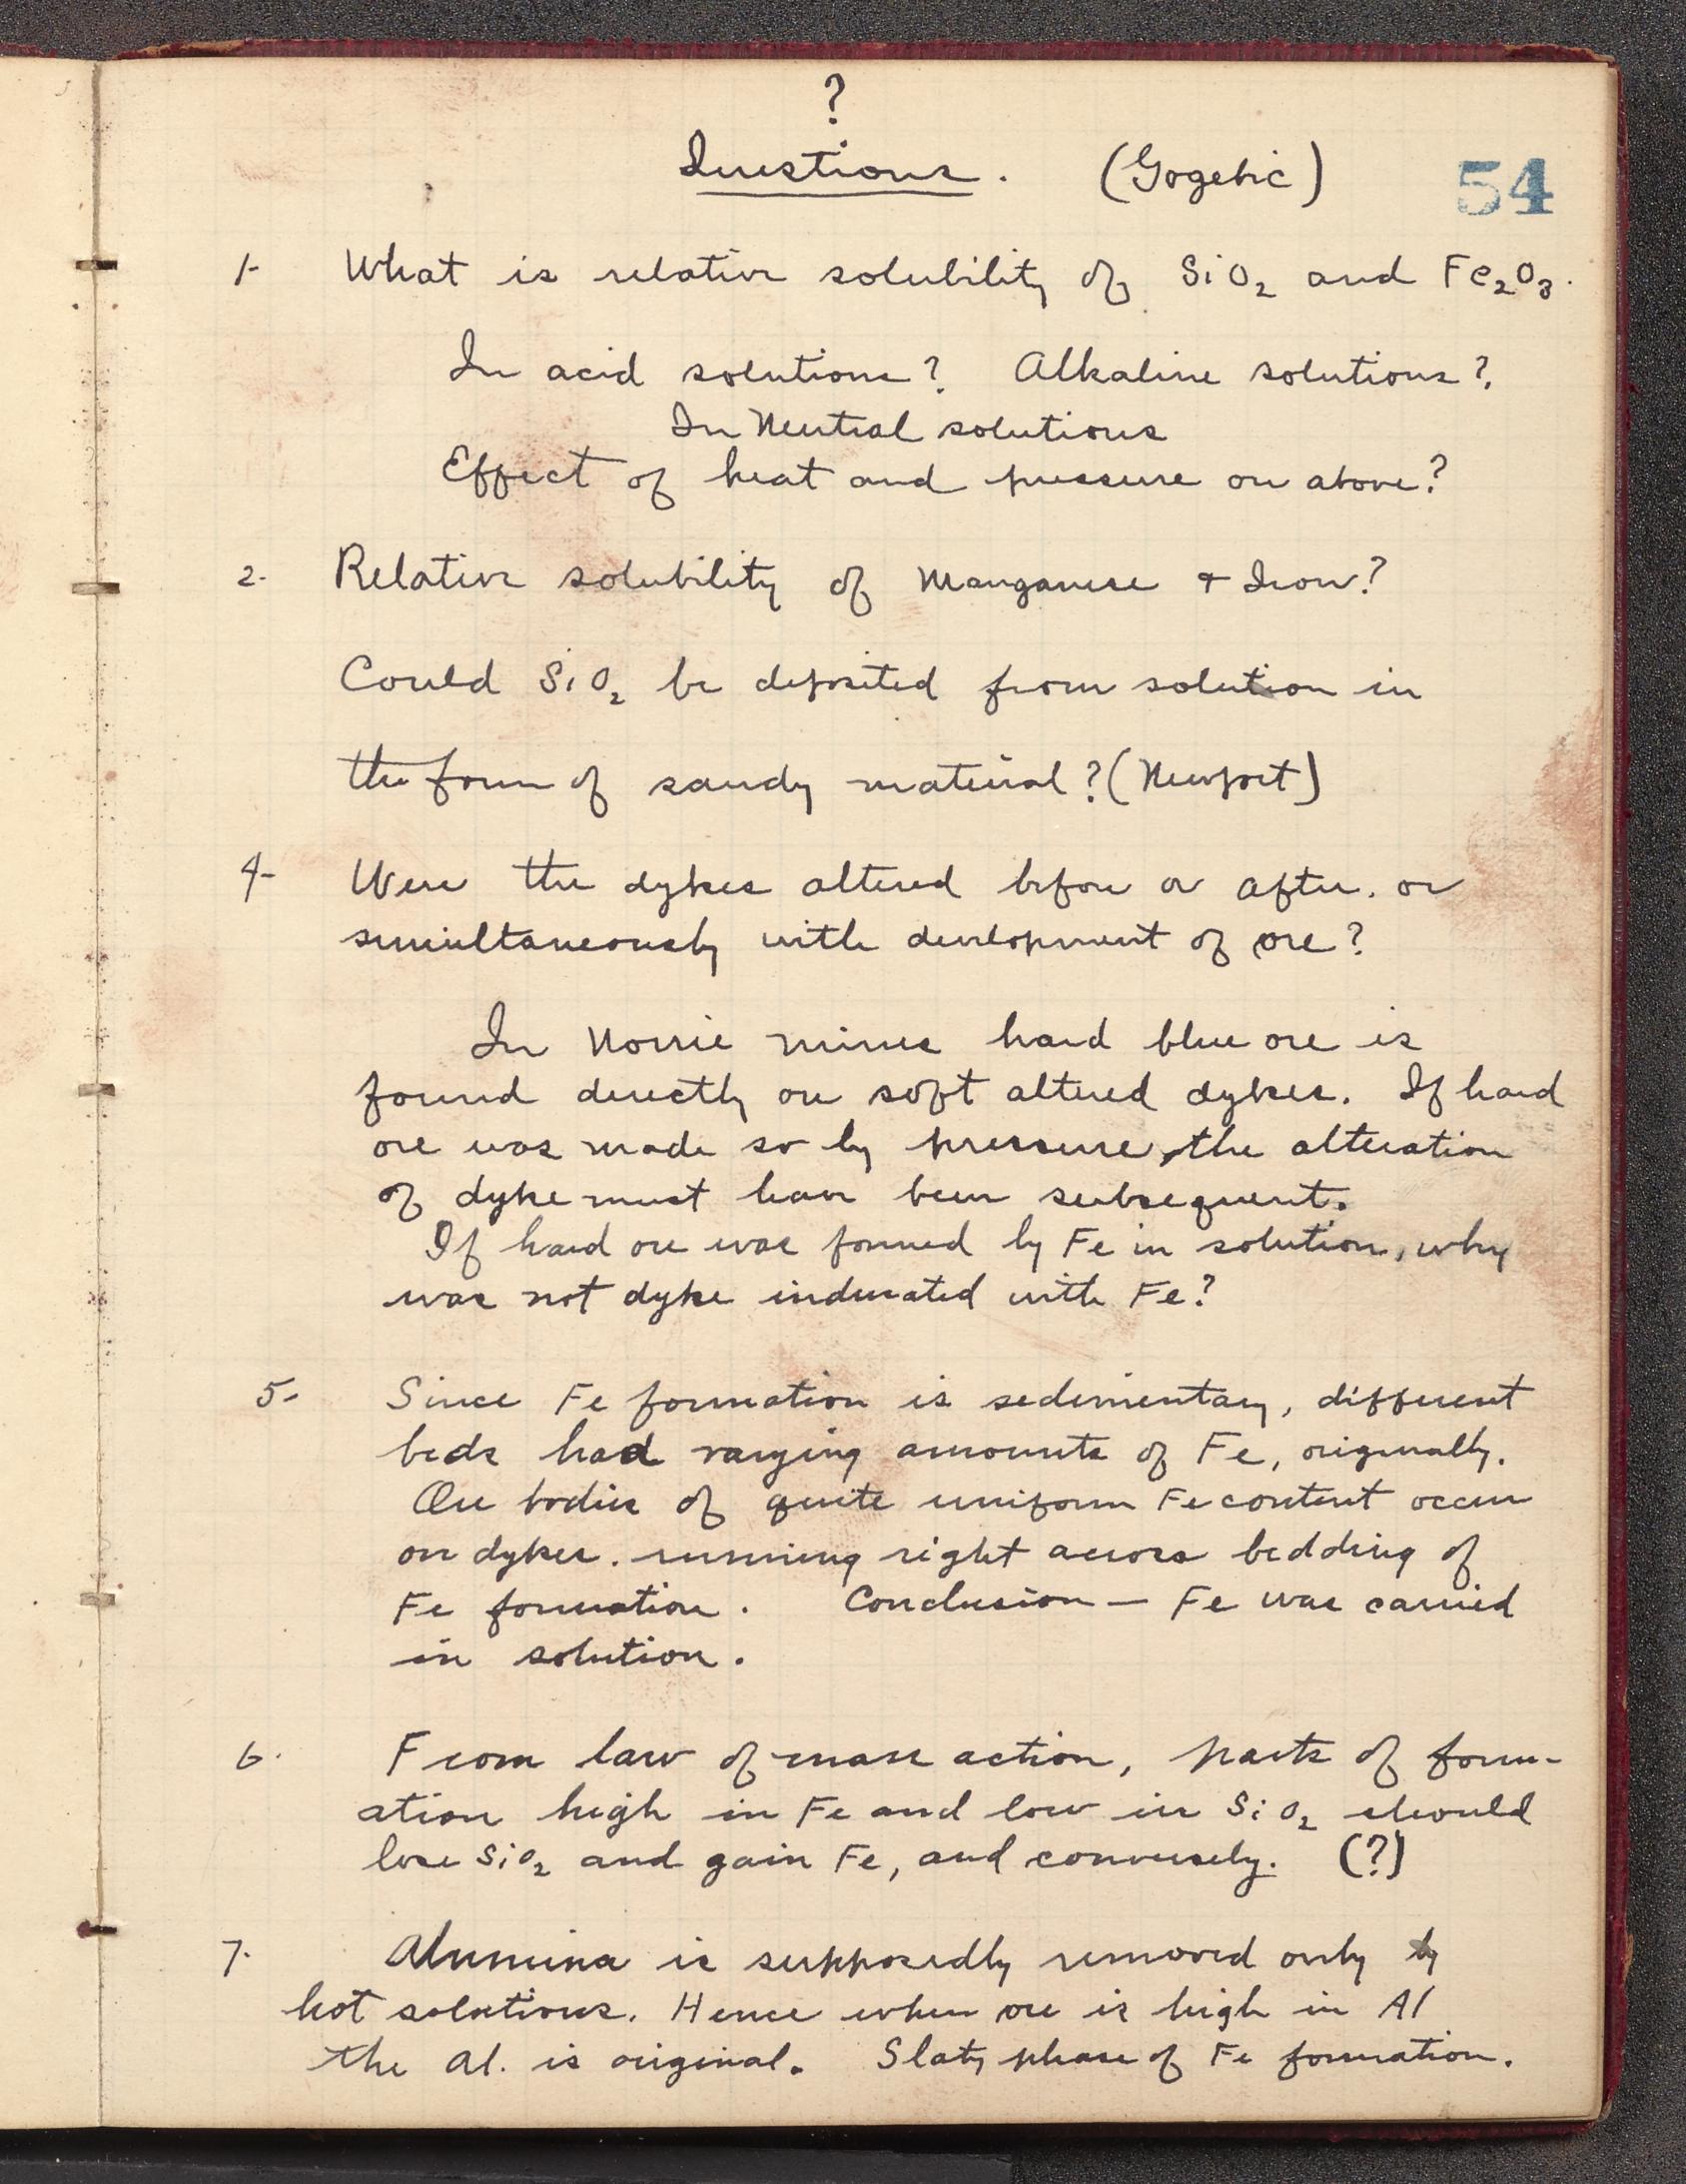 ?
Questions. (Gogebic) 54
1- What is relative solubility of SiO₂ and Fe₂O₃.
In acid solutions? Alkaline solutions?
In Neutral solutions
Effect of heat and pressure on above?
2. Relative solubility of Manganese + Iron?
Could SiO₂ be deposited from solution in
the form of sandy material? (Newport)
4- Were the dykes altered before or after. or
simultaneously with development of ore?
In Norrie mines hard blue ore is
found directly on soft altered dykes. If hard
ore was made so by pressure, the alteration
of dyke must have been subsequent.
If hard ore was formed by Fe in solution, why
was not dyke indurated with Fe?
5- Since Fe formation is sedimentary, different
beds had varying amounts of Fe, originally.
Ore bodies of quite uniform Fe content occur
on dykes. running right across bedding of
Fe formation. Conclusion — Fe was carried
in solution.
6. From law of mass action, parts of form-
ation high in Fe and low in SiO₂ should
lose SiO₂ and gain Fe, and conversely. (?)
7. Alumina is supposedly removed only by
hot solutions. Hence when ore is high in Al
the Al. is original. Slaty phase of Fe formation.